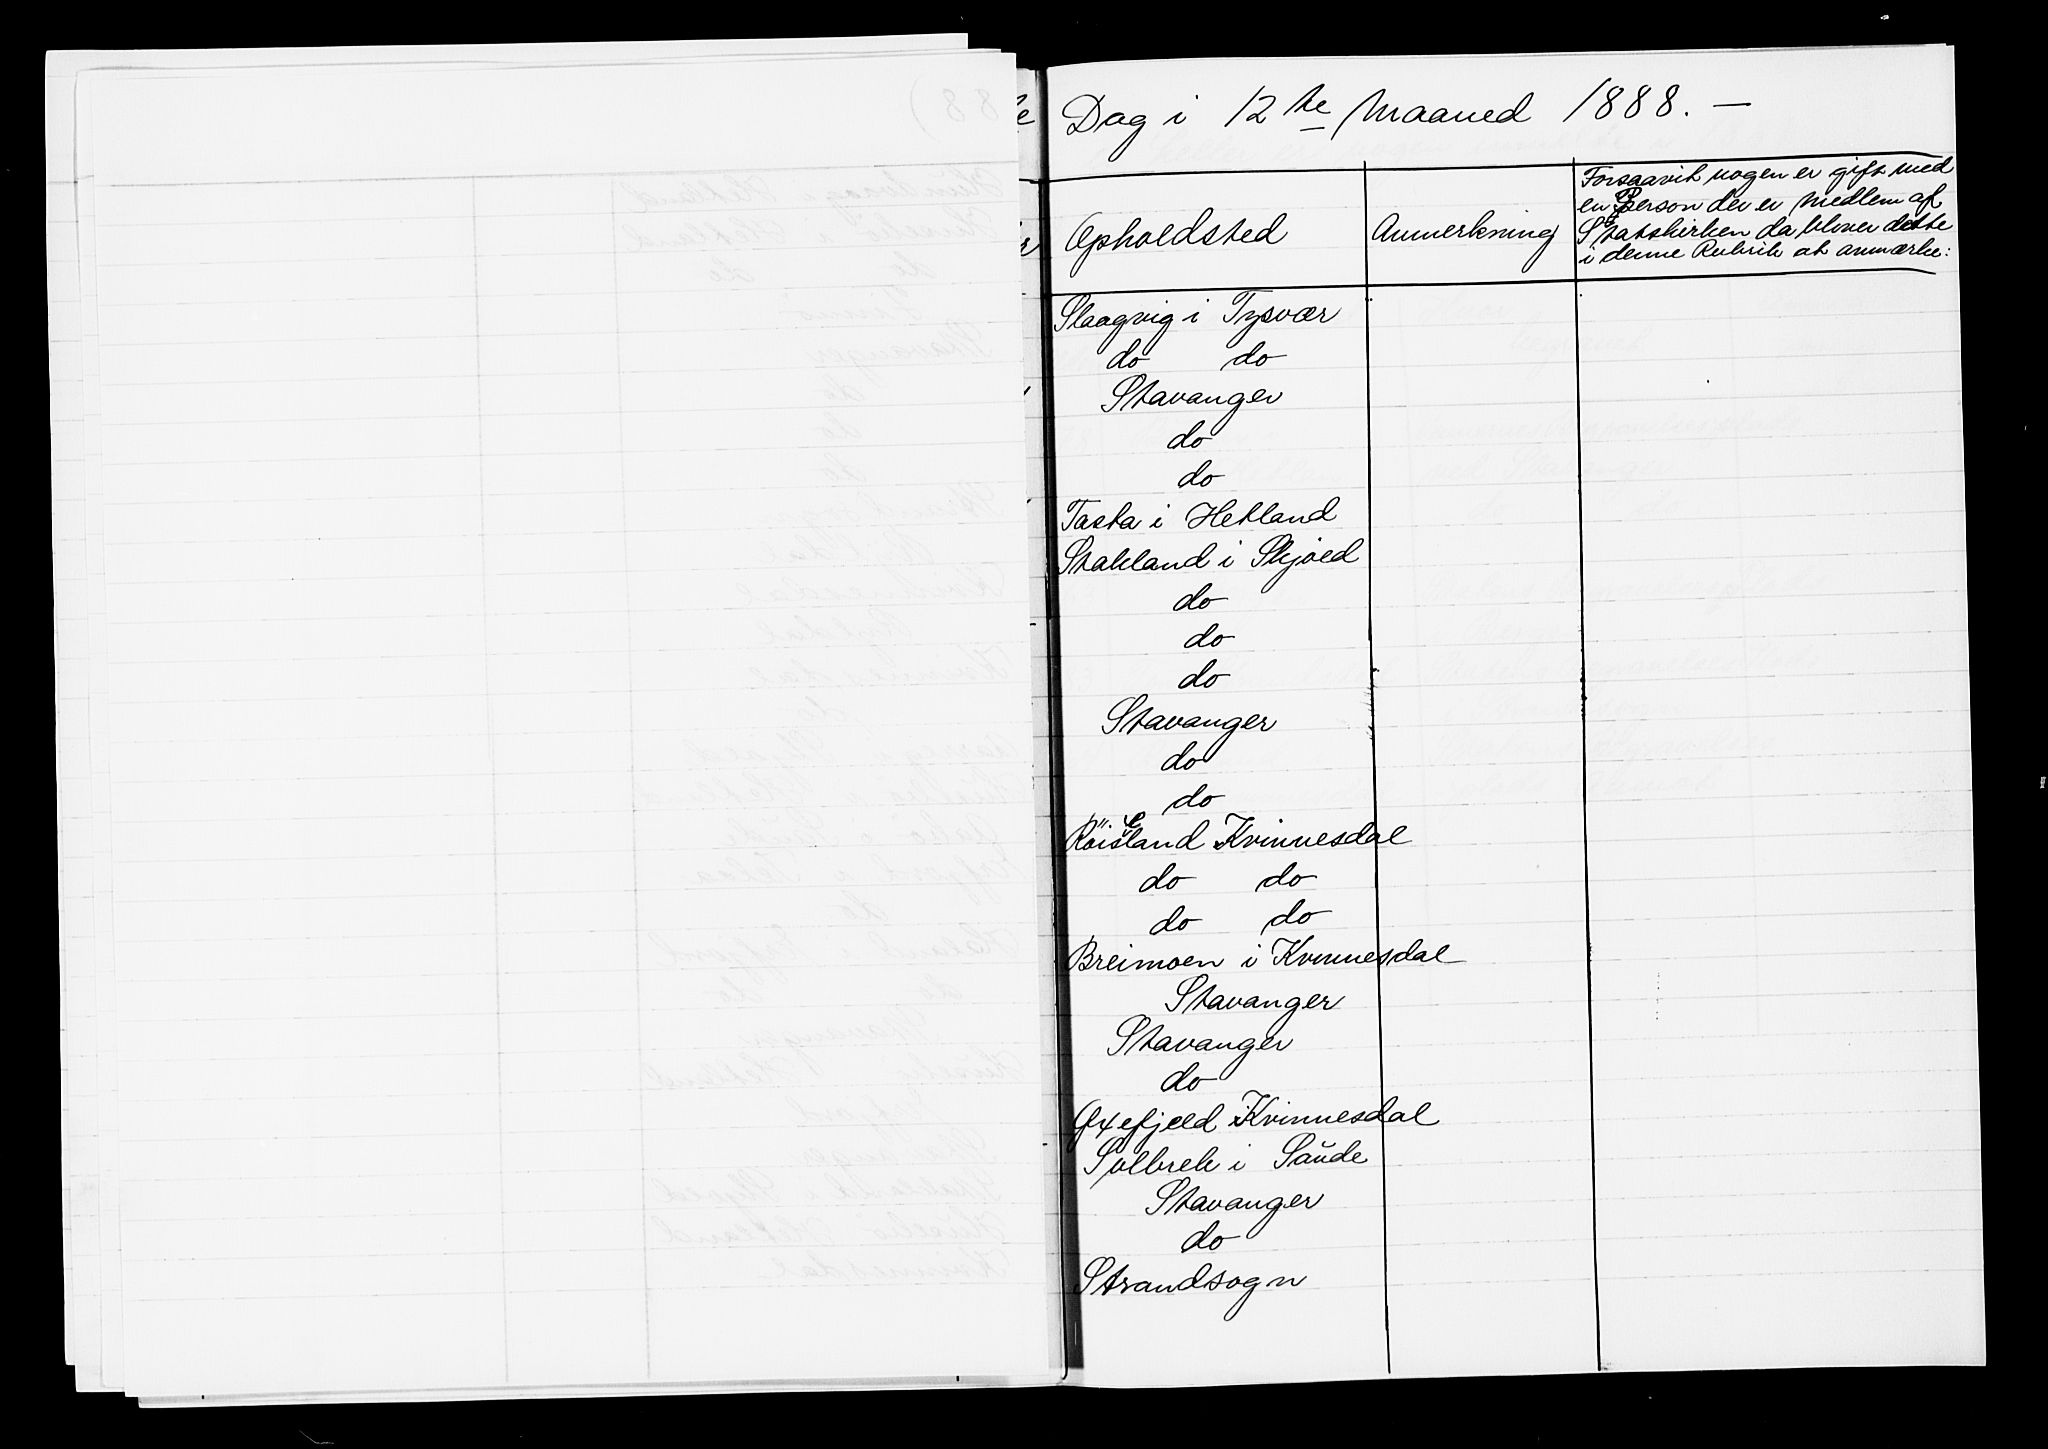 Dag i 12te Maaned 1888. —
Opholdsted
Anmerkning
Forsaavit nogen er gift med
en Person der er Medlem af
Statskirken da bliver dette
i denne Rubrik at anmærke:
Slaagvig i Tysvær
do do
Stavanger
do
do
Tasta i Hetland
Stakland i Skjold
do
do
do
Stavanger
do
do
Röiseland Kvinnesdal
do do
do do
Breimoen i Kvinnesdal
Stavanger
Stavanger
do
Oxefjeld i Kvinnesdal
i Saude
Stavanger
do
Strandsogn